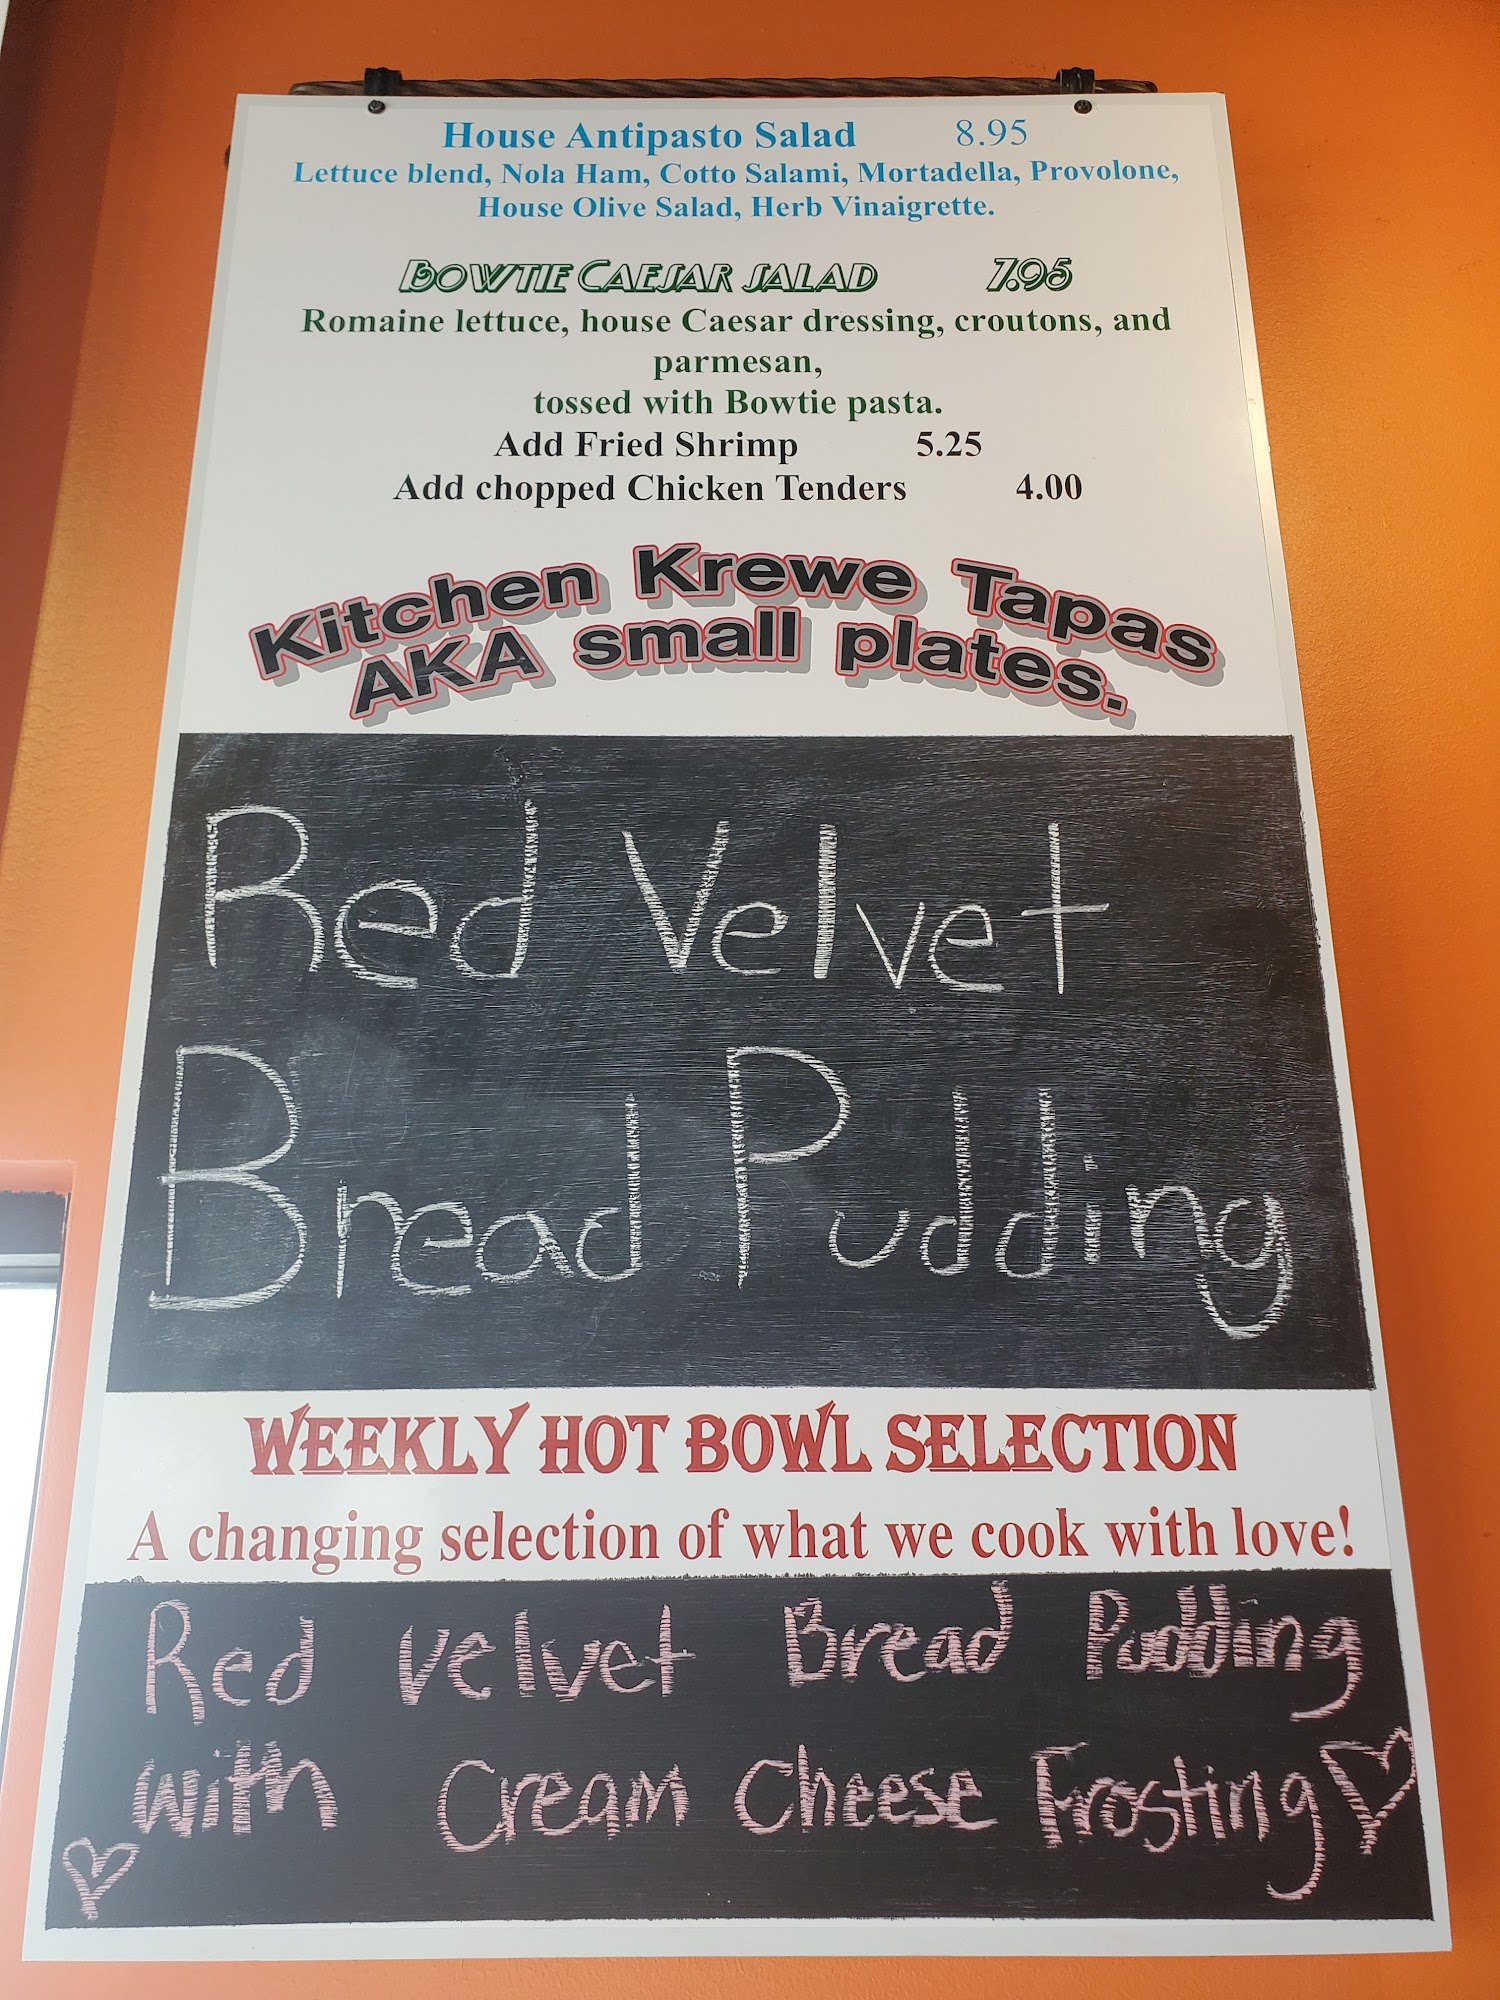 House Antipasto Salad 8.95
Lettuce blend, Nola Ham, Cotto Salami, Mortadella, Provolone,
House Olive Salad, Herb Vinaigrette.
Bowtie Caesar Salad 7.95
Romaine lettuce, house Caesar dressing, croutons, and
parmesan,
tossed with Bowtie pasta.
Add Fried Shrimp 5.25
Add chopped Chicken Tenders 4.00
Kitchen Krewe Tapas
AKA small plates.
Red Velvet
Bread Pudding
WEEKLY HOT BOWL SELECTION
A changing selection of what we cook with love!
Red velvet Bread Pudding
with Cream Cheese Frosting